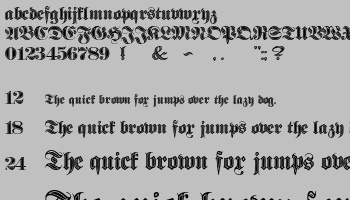 abcdefghijklmnopqrstuvwxyz
ABCDEFGHIJKLMNOPQRSTUVWX
0123456789 ! & ~ . . " : ; ?
12 The quick brown fox jumps over the lazy dog.
18 The quick brown fox jumps over the lazy
24 The quick brown fox jumps ove